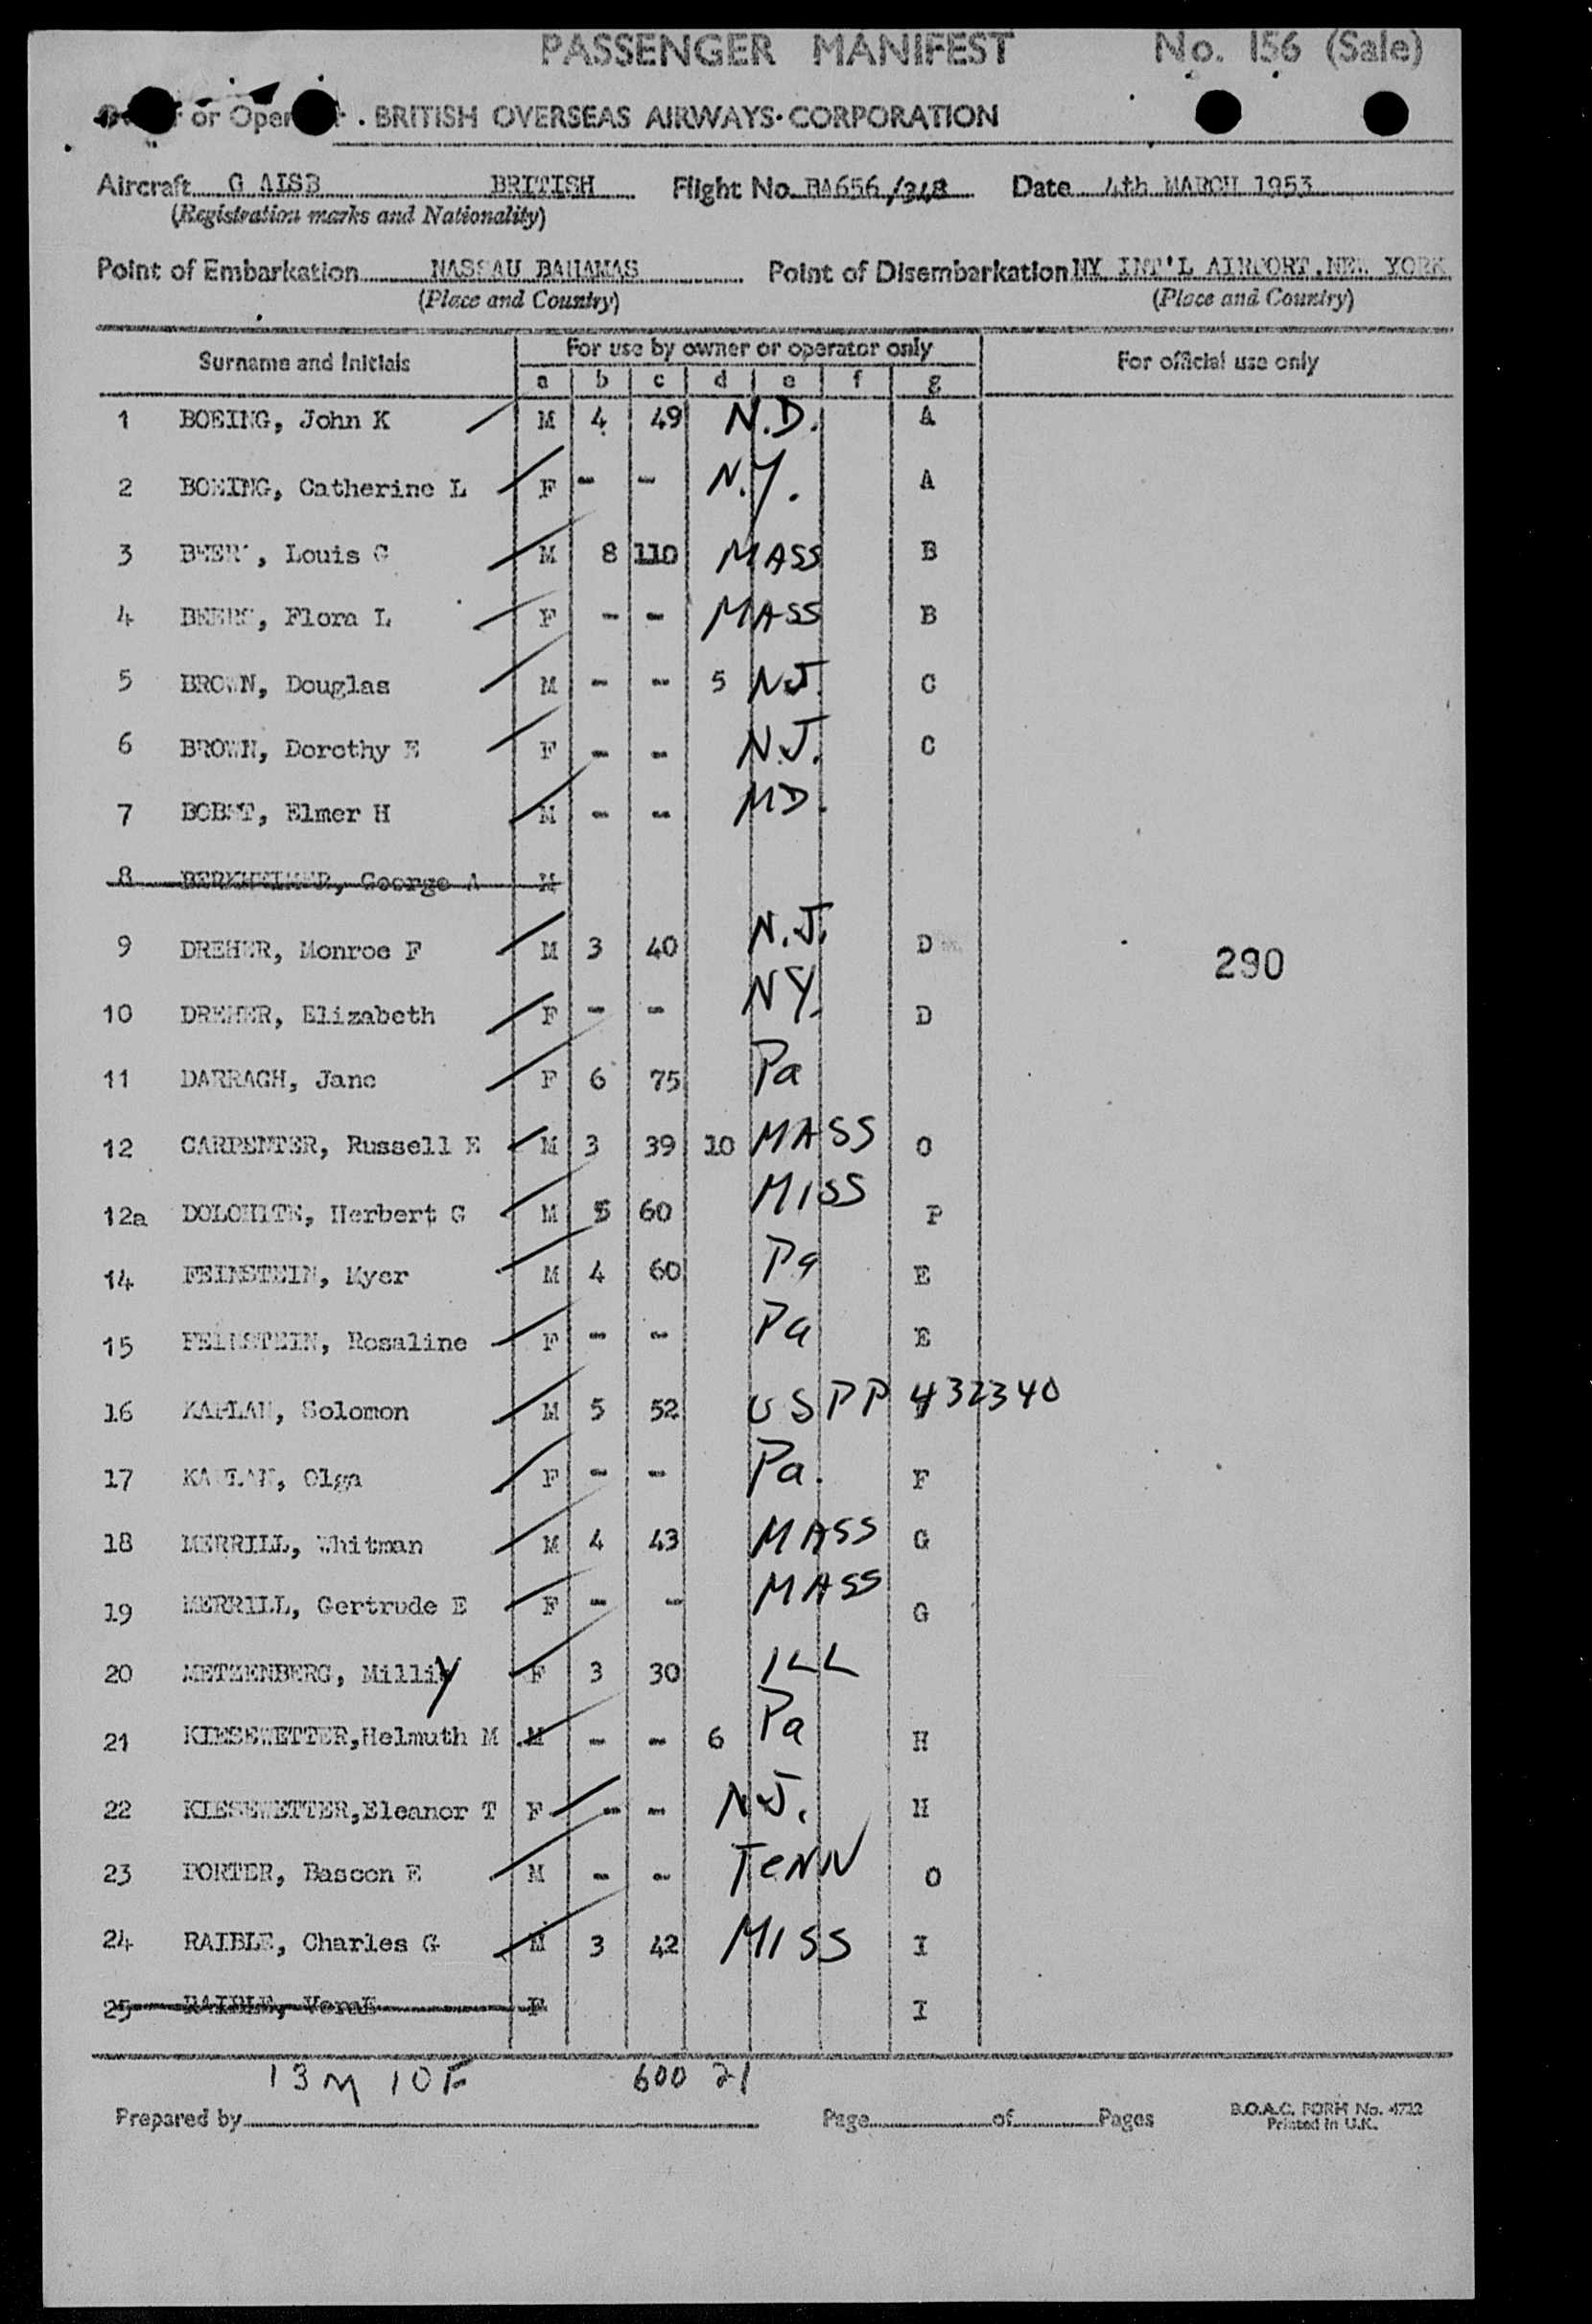 PASSENGER MANIFEST No. 156 (Sale)
or Oper BRITISH OVERSEAS AIRWAYS CORPORATION
Aircraft G AISB BRITISH Flight No. BA656/348 Date 4th MARCH 1953
(Registration marks and Nationality)
Point of Embarkation NASSAU BAHAMAS Point of Disembarkation NY INT'L AIRPORT, NEW YORK
(Place and Country) (Place and Country)
Surname and Initials For use by owner or operator only For official use only
a b c d e f g
1 BOEING, John K M 4 49 N.D. A
2 BOEING, Catherine L F - - N.Y. A
3 Louis G M 8 110 MASS B
4 Flora L F - - MASS B
5 BROWN, Douglas M - - 5 N.J. C
6 BROWN, Dorothy E F - - N.J. C
7 BOBST, Elmer H M - - MD.
8 BERKHEIMER, George A M
9 DREHER, Monroe F M 3 40 N.J. D
290
10 DREHER, Elizabeth F - - NY. D
11 DARRAGH, Jane F 6 75 Pa
12 CARPENTER, Russell E M 3 39 10 MASS O
12a DOLOHITE, Herbert G M 5 60 MISS P
14 FEINSTEIN, Myer M 4 60 Pa E
15 FEINSTEIN, Rosaline F - - Pa E
16 KAPLAN, Solomon M 5 52 USPP 432340
17 KAPLAN, Olga F - - Pa. F
18 MERRILL, Whitman M 4 43 MASS G
19 MERRILL, Gertrude E F - - MASS G
20 METZENBERG, Milliy F 3 30 ILL
21 KIESEWETTER,Helmuth M M - - 6 Pa H
22 KIESEWETTER,Eleanor T F - - N.J. H
23 PORTER, Bascon E M - - TeNN O
24 RAIBLE, Charles G M 3 42 MISS I
25 RAIBLE, VeraE F I
13 M 10 F 600 21
Prepared by Page of Pages B.O.A.C. FORM No. 4722
Printed in U.K.